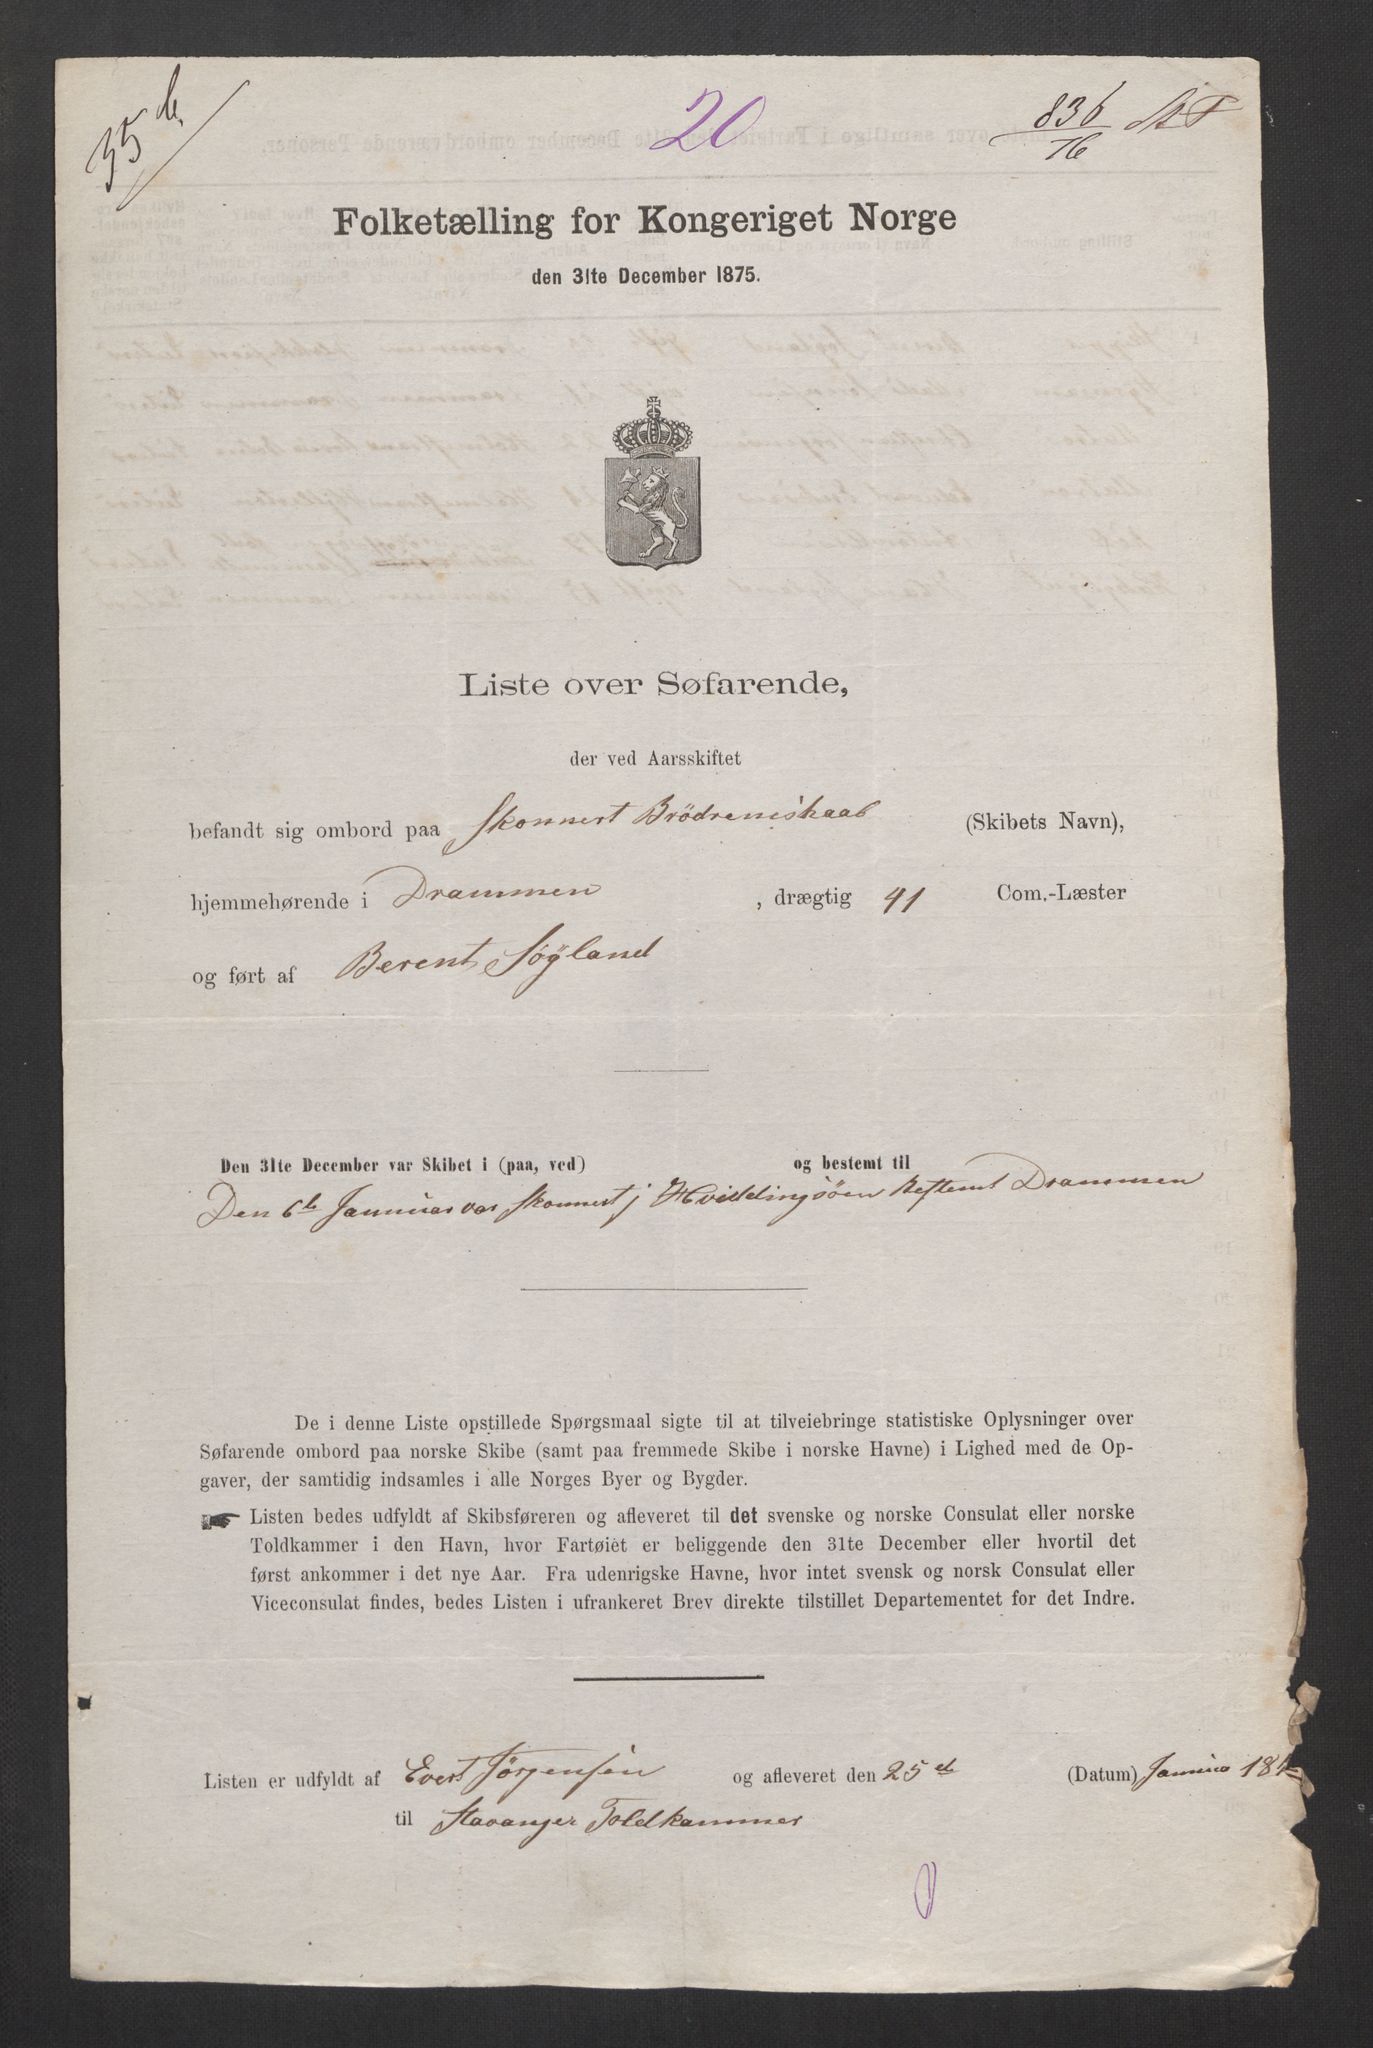 35 de
20
836
76
Folketælling for Kongeriget Norge
den 31te December 1875.
Liste over Søfarende,
der ved Aarsskiftet
befandt sig ombord paa Skonnert Brödreneskaab (Skibets Navn),
hjemmehørende i Drammen , drægtig 41 Com.-Læster
og ført af Berent Søyland
Den 31te December var Skibet i (paa, ved) og bestemt til
Den 6te Januar var Skonnert j Hviddingsöen Bestemt Drammen
De i denne Liste opstillede Spørgsmaal sigte til at tilveiebringe statistiske Oplysninger over
Søfarende ombord paa norske Skibe (samt paa fremmede Skibe i norske Havne) i Lighed med de Op-
gaver, der samtidig indsamles i alle Norges Byer og Bygder.
Listen bedes udfyldt af Skibsføreren og afleveret til det svenske og norske Consulat eller norske
Toldkammer i den Havn, hvor Fartøiet er beliggende den 31te December eller hvortil det
først ankommer i det nye Aar. Fra udenrigske Havne, hvor intet svensk og norsk Consulat eller
Viceconsulat findes, bedes Listen i ufrankeret Brev direkte tilstillet Departementet for det Indre.
Listen er udfyldt af Evert Jørgensen og afleveret den 25de (Datum) Januar
til Stavanger Toldkammer